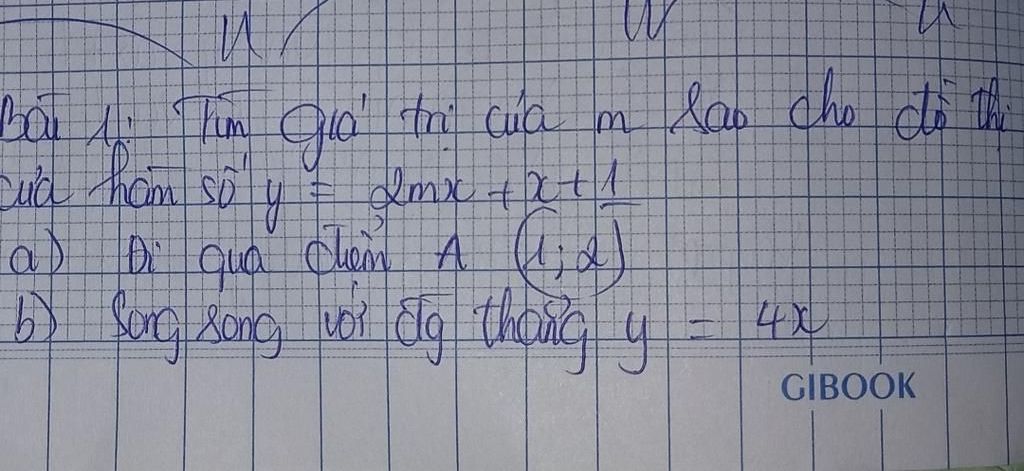 Bài 1: Tìm giá trị của m sao cho đồ thị
của hàm số y = 2mx + x + 1
a) Đi qua điểm A (1; 2)
b) Song song với đg thẳng y = 4x
GIBOOK